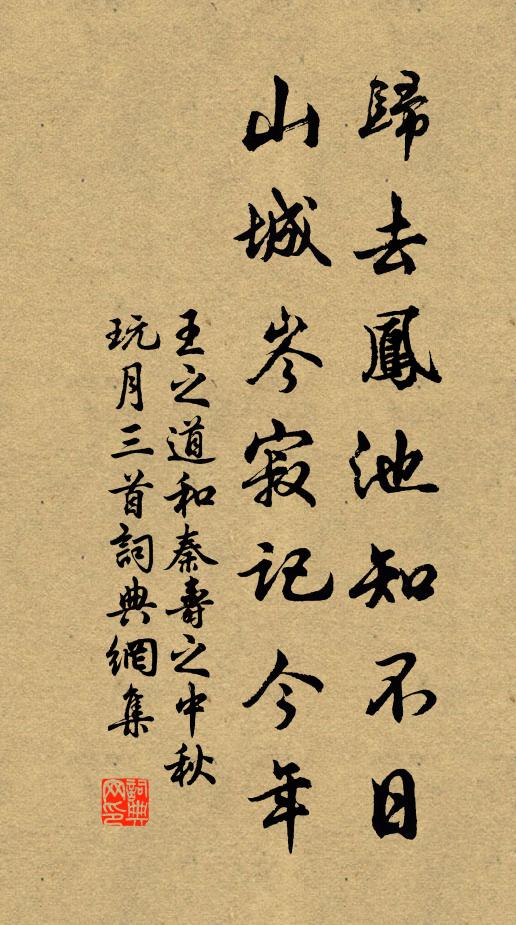 歸去鳳池知不日
山城岑寂記今年
王之道和秦壽之中秋
玩月三首詞典網集
詞典
网印